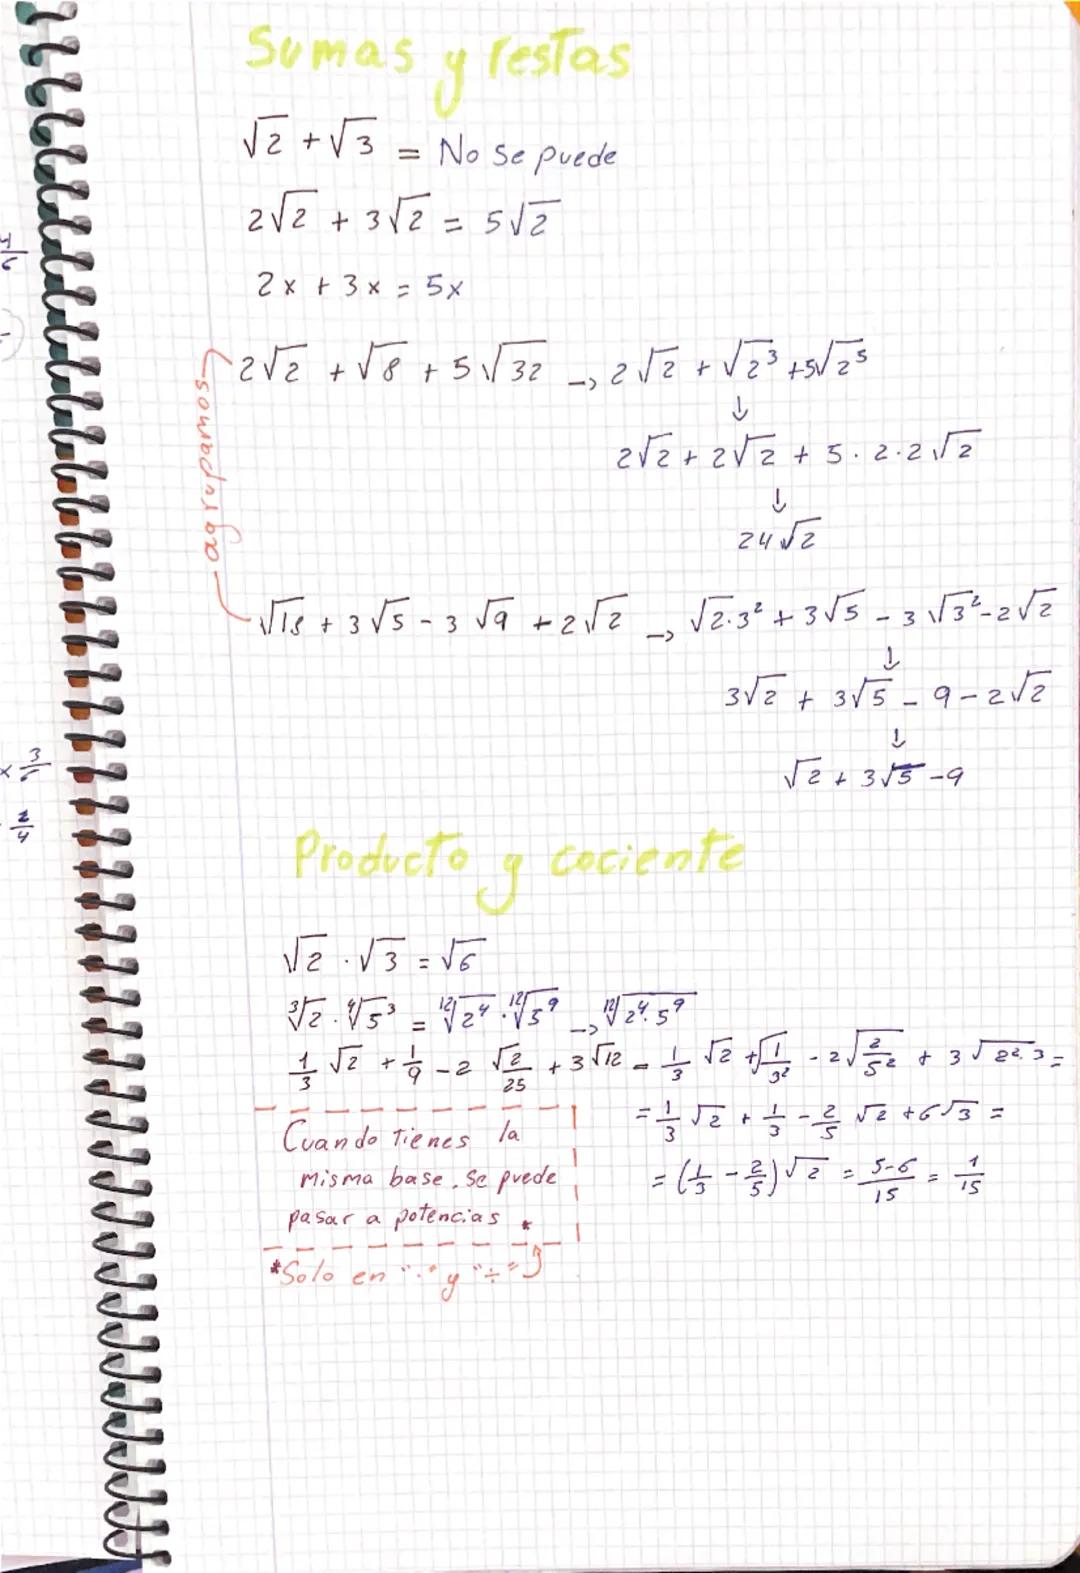 Sumas y restas
√2 + √3 = No se puede
2√2 + 3√2 = 5√2
2x + 3x = 5x
agrupamos
2√2 + √8 + 5√32 → 2√2 + √2³ + 5√2⁵
↓
2√2 + 2√2 + 5·2·2√2
↓
24√2
√18 + 3√5 - 3√9 + 2√2 → √2·3² + 3√5 - 3√3² - 2√2
↓
3√2 + 3√5 - 9 - 2√2
↓
√2 + 3√5 - 9
Producto y cociente
√2 · √3 = √6
∛2 · ∜5³ = ¹²√2⁴ · ¹²√5⁹ → ¹²√2⁴·5⁹
1/3 √2 + 1/9 - 2 √2/25 + 3√12 = 1/3 √2 + √1/3² - 2√2/5² + 3√2²·3 =
= 1/3 √2 + 1/3 - 2/5 √2 + 6√3 =
= (1/3 - 2/5)√2 = 5-6/15 = 1/15
Cuando tienes la
misma base, se puede
pasar a potencias *
*Solo en "·" y "÷"
3/6
2/4